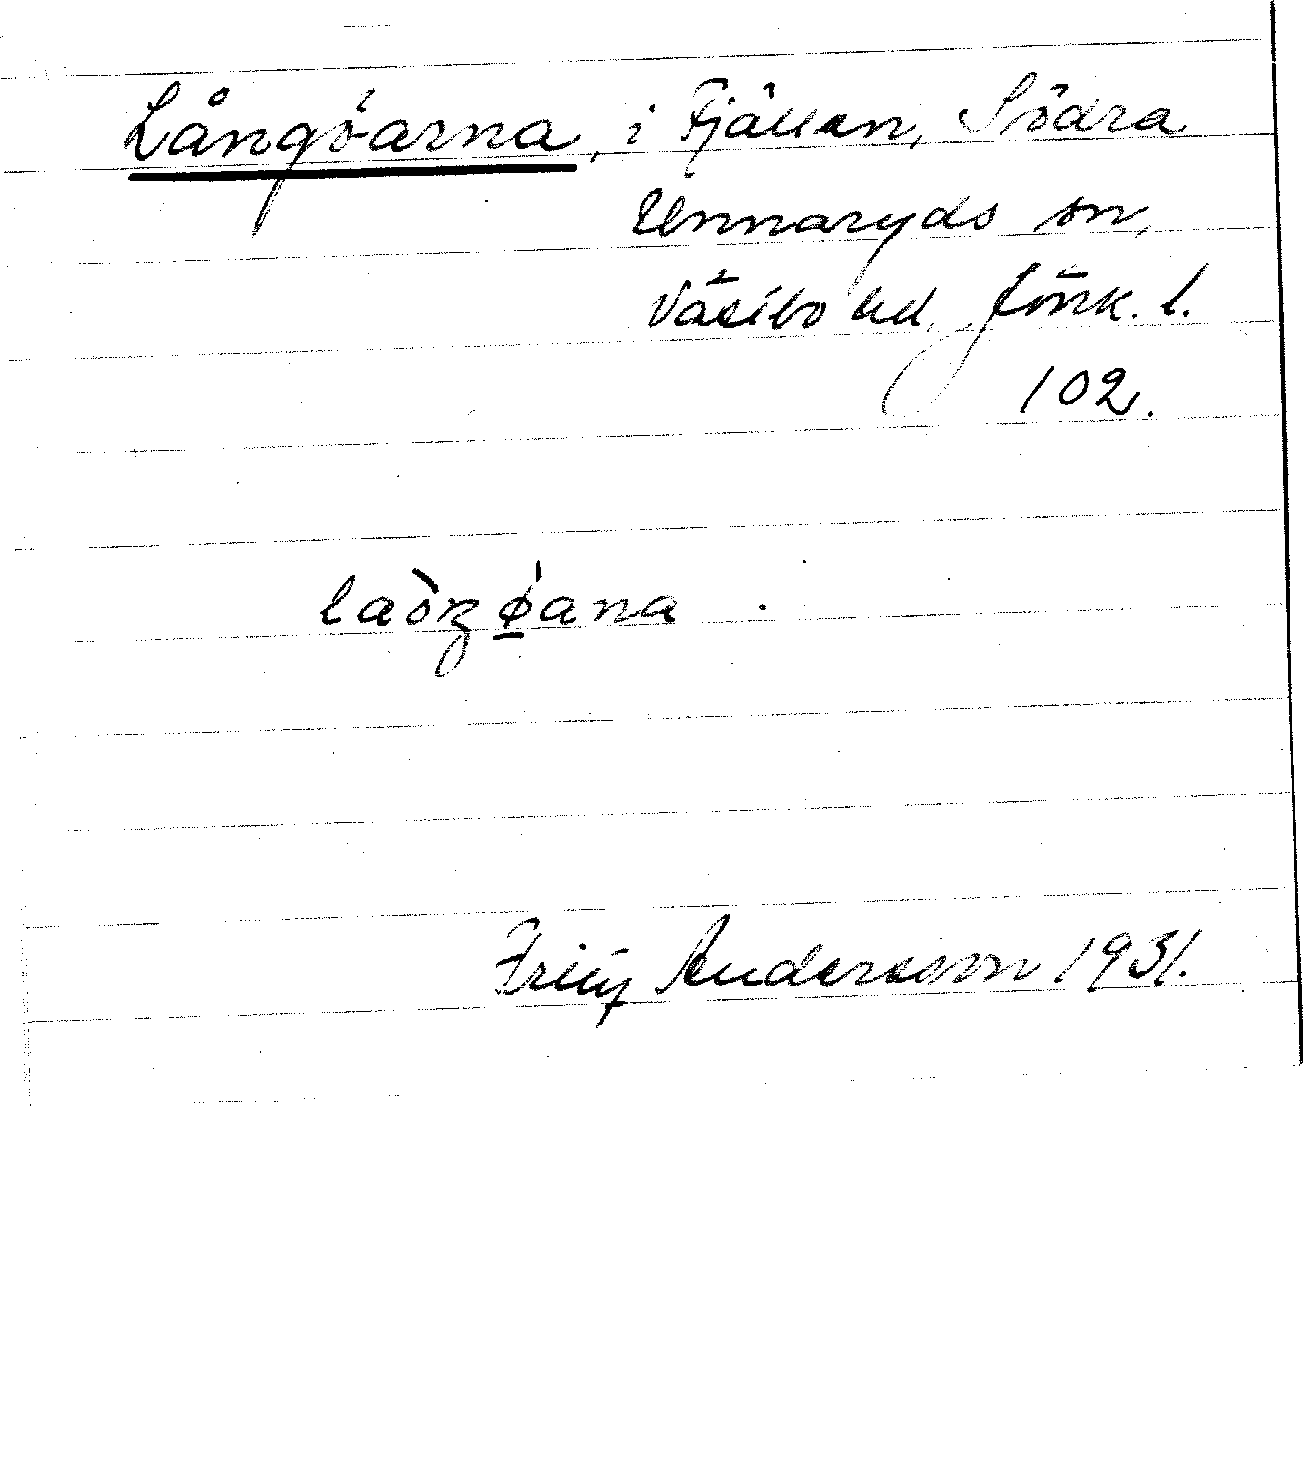 Långöarna, i Fjällen, Södra
Unnaryds sn,
Västbo hd, Jönk. l.
102.
Fritz Andersson 1931.